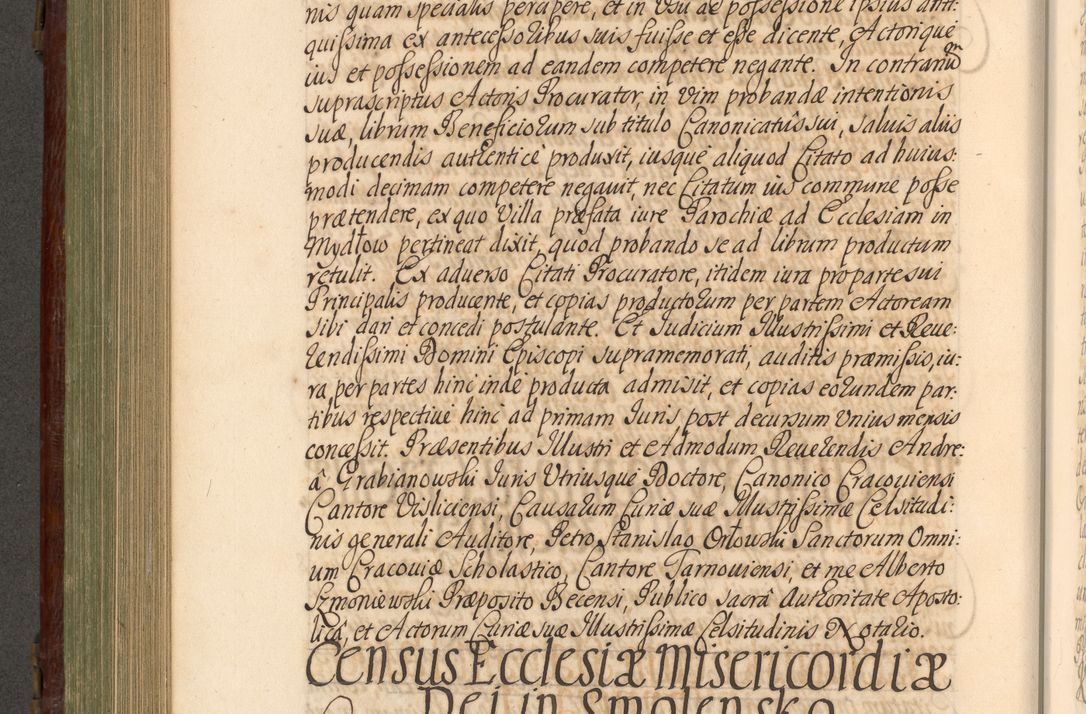 nis quam specialis perapere, et in Usu ac possessione ipsius anti:
quissima ex antecessoribus suis fuisse et esse dicente, Actorique
ius et possessionem ad eandem competere negante. In contrariu᷉m
suprascriptus Actoris Procurator, in Vim probandæ intentionis
suæ, librum Beneficiorum sub titulo Canonicatûs sui, saluis aliis
producendis autenticè produxit, iusque aliquod Citato ad huius:
modi decimam competere negauit, nec Citatum ius commune posse
prætendere, ex quo Villa præfata iure Parochiæ ad Ecclesiam in
Mydłow pertineat dixit, quod probando se ad librum productum
retulit. Ex aduerso Citati Procuratore, itidem iura pro parte sui
Principalis producente, et copias productorum per partem Actoream
sibi dari et concedi postulante. Et Judicium Illustrissimi et Reue:
rendissimi Domini Episcopi supramemorati, auditis præmissis, iu:
ra per partes hinc inde producta admisit, et copias eorundem par:
tibus respectiue hinc ad primam Juris, post decursum Unius mensis
concessit. Præsentibus Illustri et Admodum Reuerendis Andre:
â Grabianowski Juris Utriusque Doctore, Canonico Cracouiensi
Cantore Visliciensi, Causarum Curiæ suæ Illustrissimæ Celsitudi:
nis generali Auditore, Petro Stanislao Orłowski Sanctorum Omni:
um Cracouiæ Scholastico, Cantore Tarnouiensi, et me Alberto
Szmoniewski Præposito Becensi, Publico sacrâ Authoritate Aposto:
licâ, et Actorum Curiæ suæ Illustrissimæ Celsitudinis Notario.
Census Ecclesiæ Misericordiæ
Dei in Smolensko